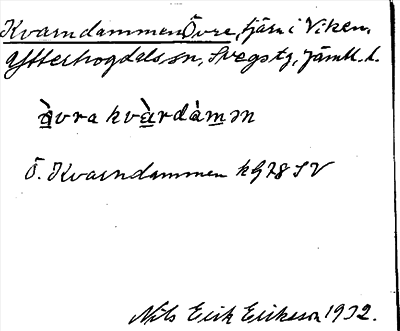 Kvarndammen, Övre, tjärn i Viken,
Ytterhogdals sn, Svegs tg, Jämtl. l.
å̀vra kvà̱rdàm̱ən
Ö. Kvarndammen kg 78 SV
Nils Erik Eriksson 1932.